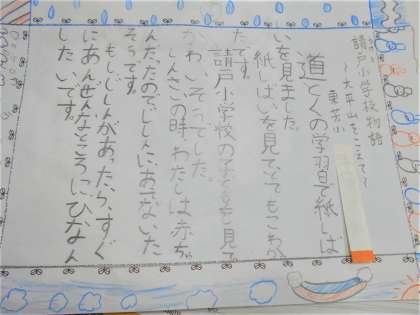 請戸小学校物語
～大平山をこえて～
道とくの学習で紙しば
いを見ました。
紙しばいを見て、とてもこわか
たです。
請戸小学校の子どもを見て
かわいそうでした。
しんさいの時、わたしは赤ちゃ
んだったので、じしんに
そうです。
もしじしんがあったら、すぐ
にあんぜんなところにひなん
したいです。